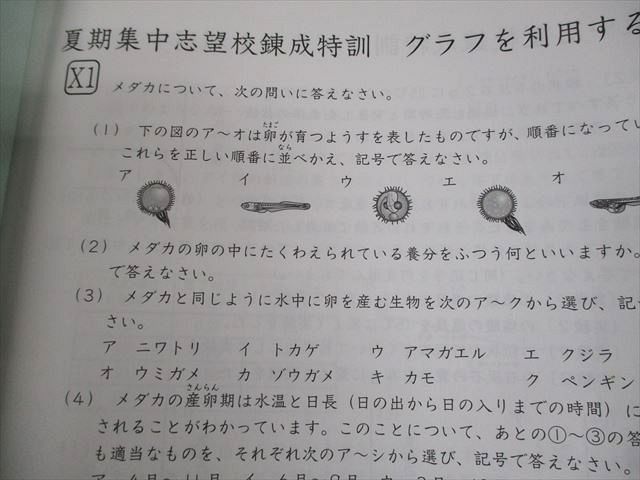 夏期集中志望校錬成特訓 グラフを利用する
X1 メダカについて、次の問いに答えなさい。
(1) 下の図のア～オは卵が育つようすを表したものですが、順番になってい
これらを正しい順番に並べかえ、記号で答えなさい。
ア イ ウ エ オ
(2) メダカの卵の中にたくわえられている養分をふつう何といいますか。
で答えなさい。
(3) メダカと同じように水中に卵を産む生物を次のア～クから選び、記
さい。
ア ニワトリ イ トカゲ ウ アマガエル エ クジラ
オ ウミガメ カ ゾウガメ キ カモ ク ペンギン
(4) メダカの産卵期は水温と日長（日の出から日の入りまでの時間）に
されることがわかっています。このことについて、あとの①～③の答
も適当なものを、それぞれ次のア～シから選び、記号で答えなさい。